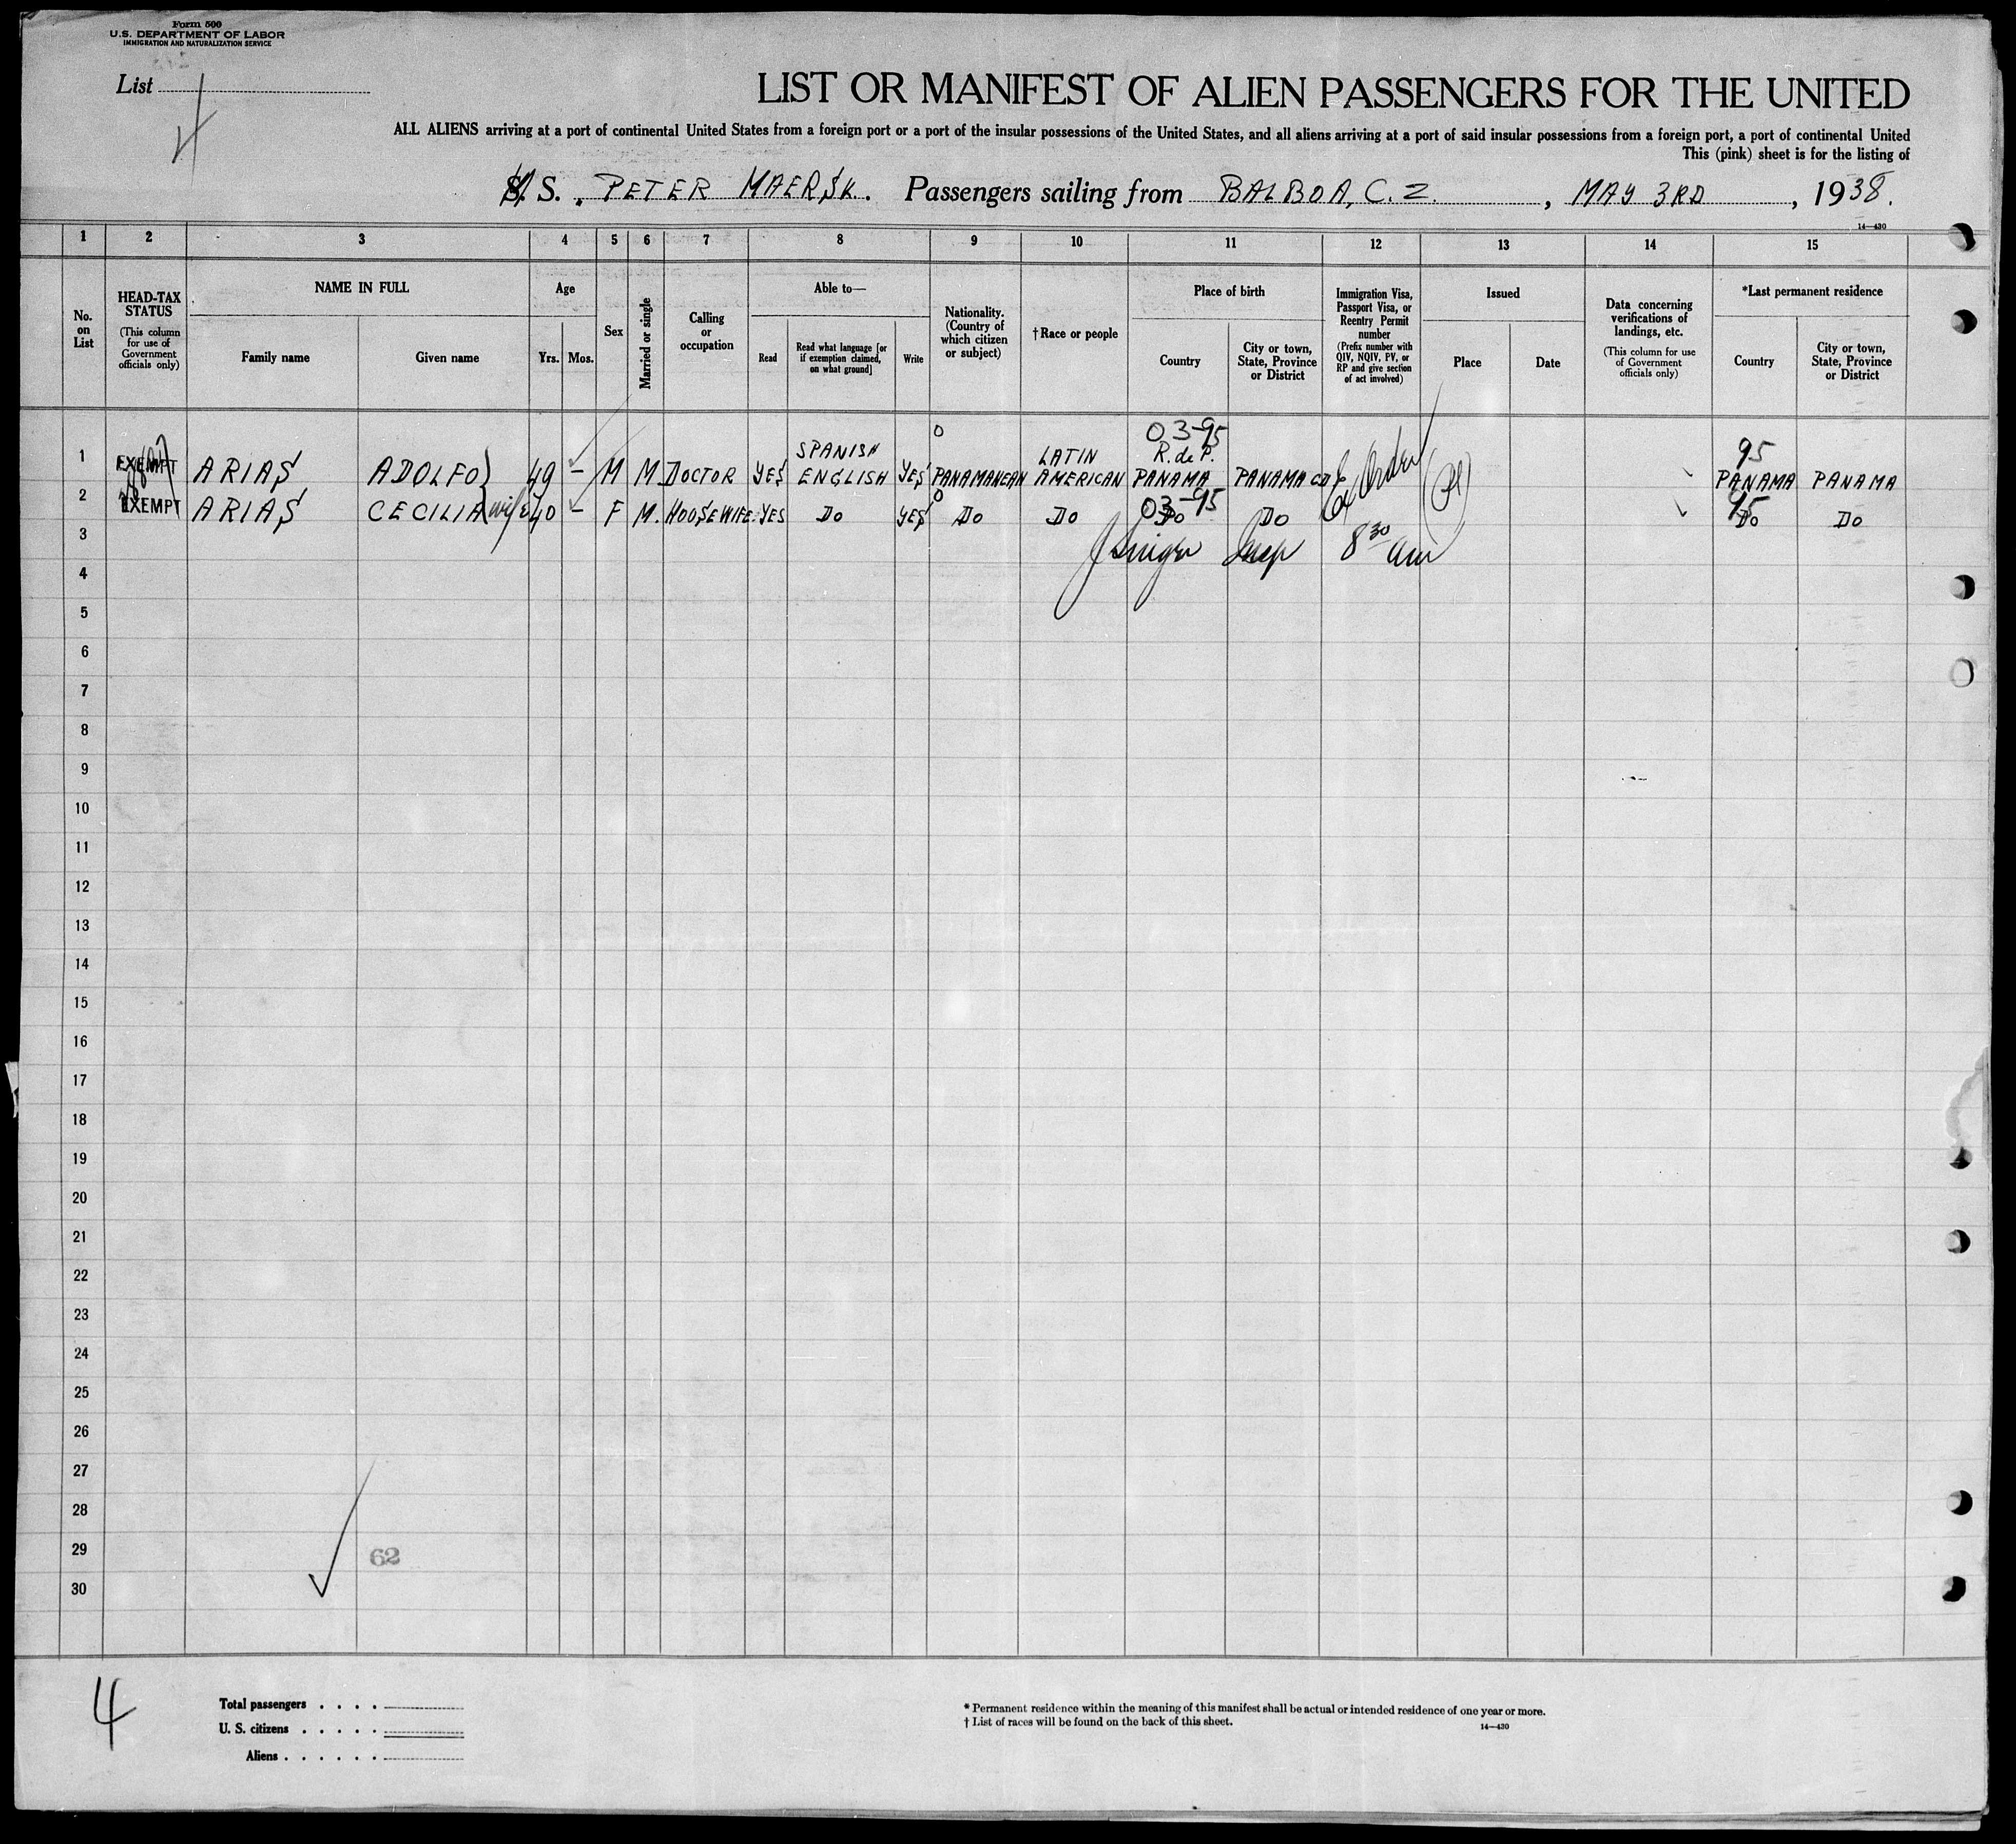 Form 500
U.S. DEPARTMENT OF LABOR
IMMIGRATION AND NATURALIZATION SERVICE
List
4
LIST OR MANIFEST OF ALIEN PASSENGERS FOR THE UNITED
ALL ALIENS arriving at a port of continental United States from a foreign port or a port of the insular possessions of the United States, and all aliens arriving at a port of said insular possessions from a foreign port, a port of continental United
This (pink) sheet is for the listing of
S. PETER MAERSK. Passengers sailing from BALBOA, C.Z. , MAY 3RD , 1938.
14—430
1 2 3 4 5 6 7 8 9 10 11 12 13 14 15
No. on List
HEAD-TAX STATUS
(This column for use of Government officials only)
NAME IN FULL
Family name Given name
Age
Yrs. Mos.
Sex
Married or single
Calling or occupation
Able to—
Read
Read what language [or if exemption claimed, on what ground]
Write
Nationality. (Country of which citizen or subject)
†Race or people
Place of birth
Country
City or town, State, Province or District
Immigration Visa, Passport Visa, or Reentry Permit number
(Prefix number with QIV, NQIV, PV, or RP and give section of act involved)
Issued
Place Date
Data concerning verifications of landings, etc.
(This column for use of Government officials only)
*Last permanent residence
Country
City or town, State, Province or District
0 03-95 95
1 EXEMPT ARIAS ADOLFO 49 – M M. DOCTOR YES SPANISH ENGLISH YES PANAMANEAN LATIN AMERICAN R. de P. PANAMA PANAMA CD PANAMA PANAMA
0 03-95 95
2 EXEMPT ARIAS CECILIA wife 40 – F M. HOUSEWIFE YES DO YES DO DO DO DO DO DO
3 Insp 8 30 am
4
5
6
7
8
9
10
11
12
13
14
15
16
17
18
19
20
21
22
23
24
25
26
27
28
29
62
30
4
Total passengers . . . .
U. S. citizens . . . . .
Aliens . . . . . .
* Permanent residence within the meaning of this manifest shall be actual or intended residence of one year or more.
† List of races will be found on the back of this sheet.
14—430